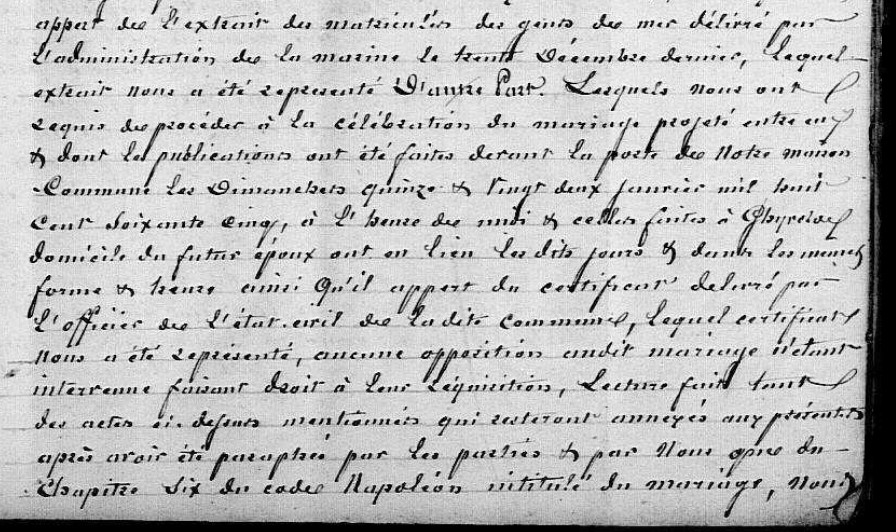 appert de l'extrait des matricules des gens de mer délivré par
L'administration de la marine le trente Décembre dernier, lequel
extrait nous a été représenté D'autre Part. Lesquels nous ont
requis de procéder à la célébration du mariage projeté entre eux
& dont les publications ont été faites devant la porte de Notre maison
Commune les Dimanches quinze & vingt deux janvier mil huit
Cent soixante cinq, à l'heure de midi & celles faites à Ghyvelde
domicile du futur époux ont eu lieu les dits jours & dans les mêmes
forme & heure ainsi qu'il appert du certificat délivré par
L'officier de l'état-civil de ladite commune, lequel certificat
nous a été représenté, aucune opposition audit mariage n'étant
intervenue faisant droit à leur réquisition, Lecture faite tant
des actes ci-dessus mentionnés qui resteront annexés aux présentes
après avoir été paraphés par les parties & par Nous que du
Chapitre Six du code Napoléon intitulé du mariage, nous